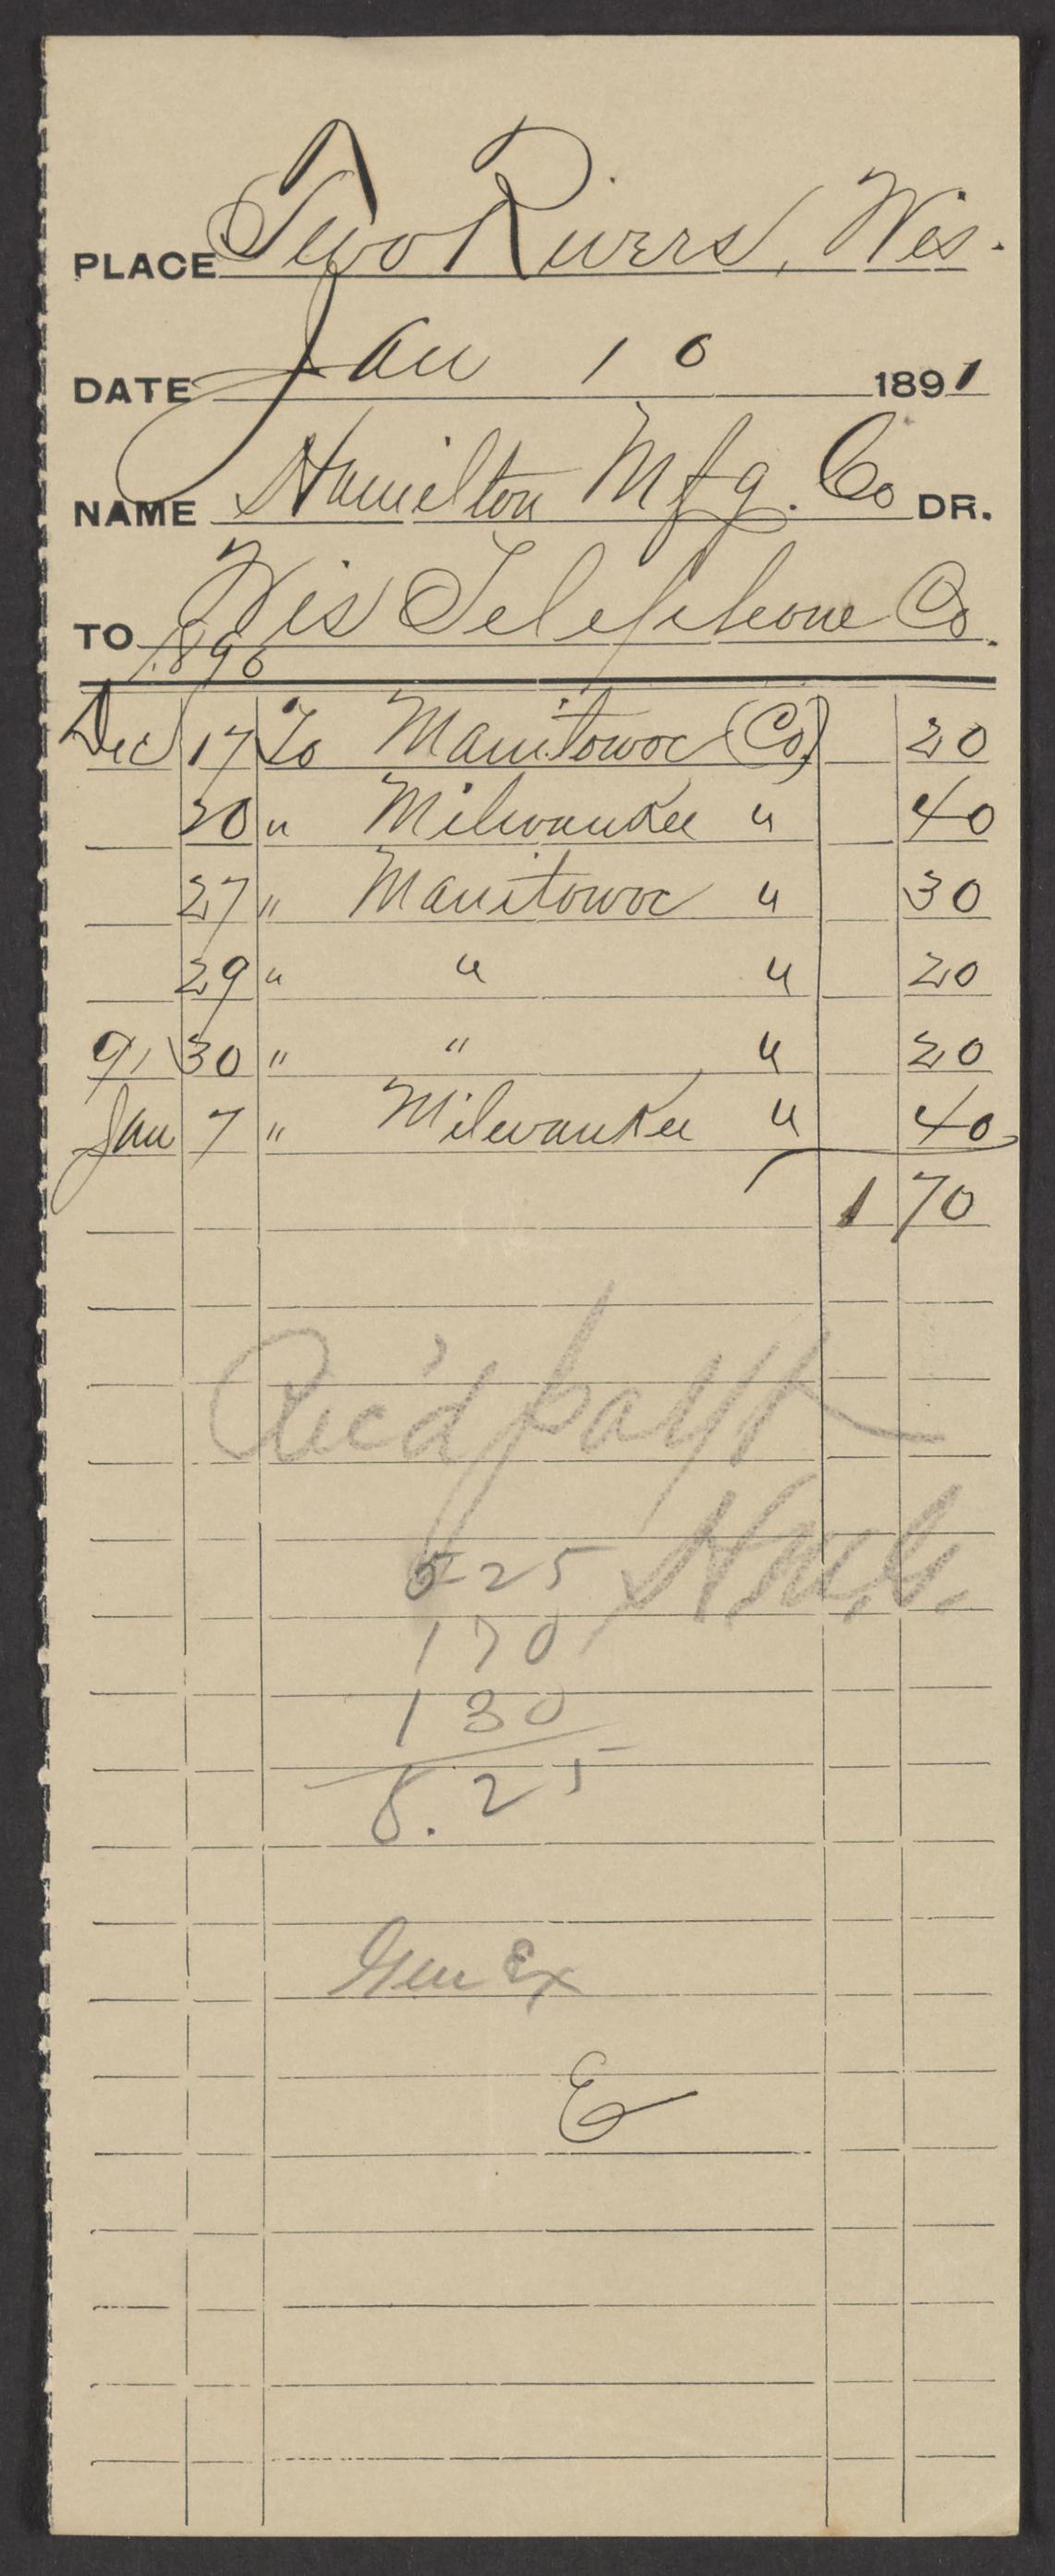 PLACE Two Rivers, Wis.
DATE Jan 10 1891
NAME Hamilton Mfg. Co DR.
TO Wis Telephone Co.
1896
Dec 17 To Manitowoc (Co) 20
20 " Milwaukee " 40
27 " Manitowoc " 30
29 " " " 20
91 30 " " " 20
Jan 7 " Milwaukee " 40
1 70
Rec'd payt
525
170
130
8.25
Gen Ex
E